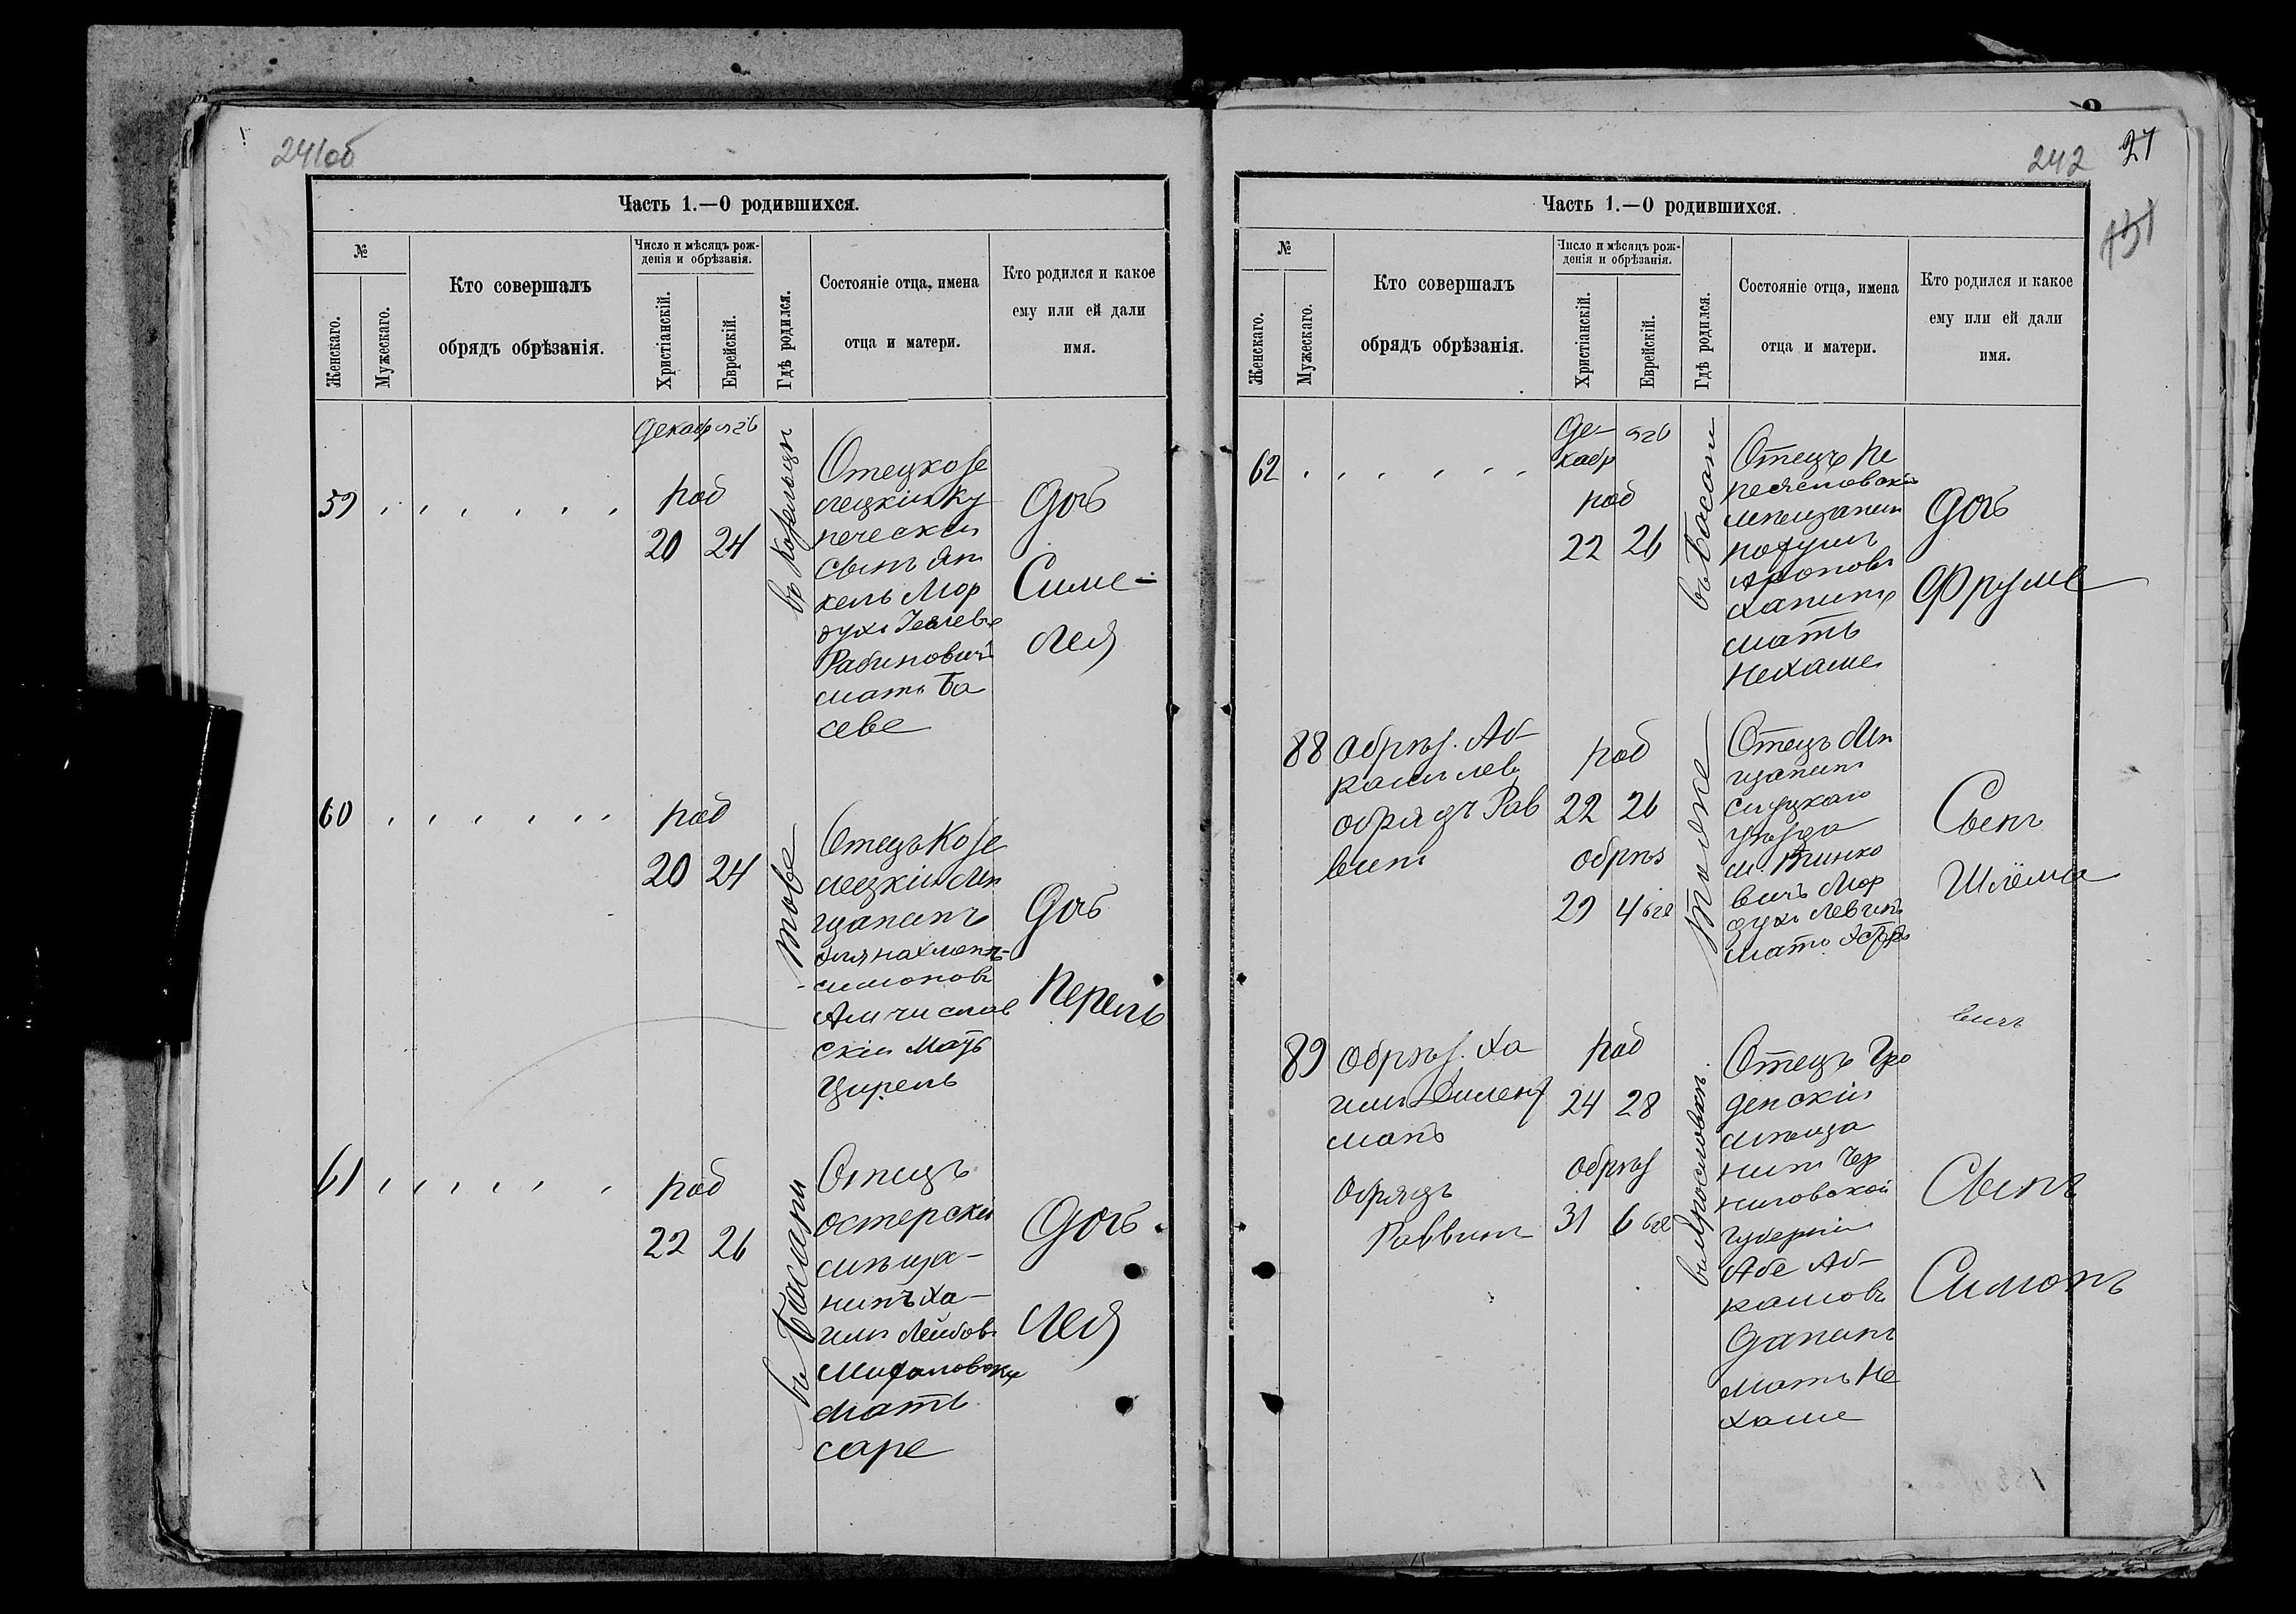 241об
Часть 1.—О родившихся.
№
Женскаго.
Мужескаго.
Кто совершалъ
обрядъ обрѣзанія.
Число и мѣсяцъ рож-
денія и обрѣзанія.
Христіанскій.
Еврейскій.
Гдѣ родился.
Состояніе отца, имена
отца и матери.
Кто родился и какое
ему или ей дали
имя.
59
Декабр
род
20 24
Отец козе
лецкій ку
печескій
сынъ Ян
кель Мор
духъ
Рабиновичъ
мать Ба
севе
Дочь
Симе-
Лея
60
род
20 24
Отецъ Козе
лецкій Мѣ
щанинъ
скій Мать
Цирель
Дочь
Перель
61
род
22 26
въ Басани
Отецъ
остерскій
мѣща-
нинъ Ха-
имъ Лейбов
мать
саре
Дочь
Лея
242 27
Часть 1.—О родившихся.
№
Женскаго.
Мужескаго.
Кто совершалъ
обрядъ обрѣзанія.
Число и мѣсяцъ рож-
денія и обрѣзанія.
Христіанскій.
Еврейскій.
Гдѣ родился.
Состояніе отца, имена
отца и матери.
Кто родился и какое
ему или ей дали
имя.
62
Де-
кабр
род
22 26
въ Басани
Отецъ Пе
реясловскій
мѣщанин
Аронов
Ханинъ
мать
Нехаме
Дочь
Фруме
88
обрѣз. Аб-
рам лев
обрядъ Рав
вин
род
22 26
обрѣз
29 4
Тоже
Отецъ Мѣ
щанин
слуцкаго
уѣзда
м. Тинко
вичъ Мор
духъ Левинъ
мать
Сынъ
Шлёма
89
обрѣз. Ха
имъ
манъ
обрядъ
Раввинъ
род
24 28
обрѣз
31 6
вичъ
Отецъ Гро
денскій
мѣща
нинъ Чер
ниговской
губерніи
Абе Аб-
рамовъ
Данинъ
мать Не
хаме
Сынъ
Симонъ